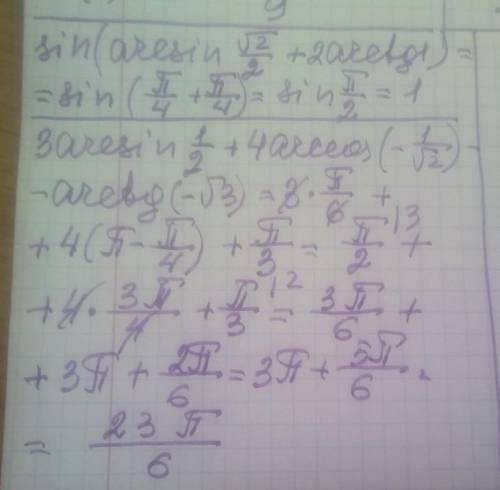 sin(arcsin √2/2 + 2arctg1) =
= sin (π/4 + π/4) = sin π/2 = 1
3arcsin 1/2 + 4arccos(-1/√2) -
- arctg(-√3) = 3·π/6 +
+ 4(π - π/4) + π/3 = π/2 \3 +
+ 4·3π/4 + π/3 \2 = 3π/6 +
+ 3π + 2π/6 = 3π + 5π/6 =
= 23π/6